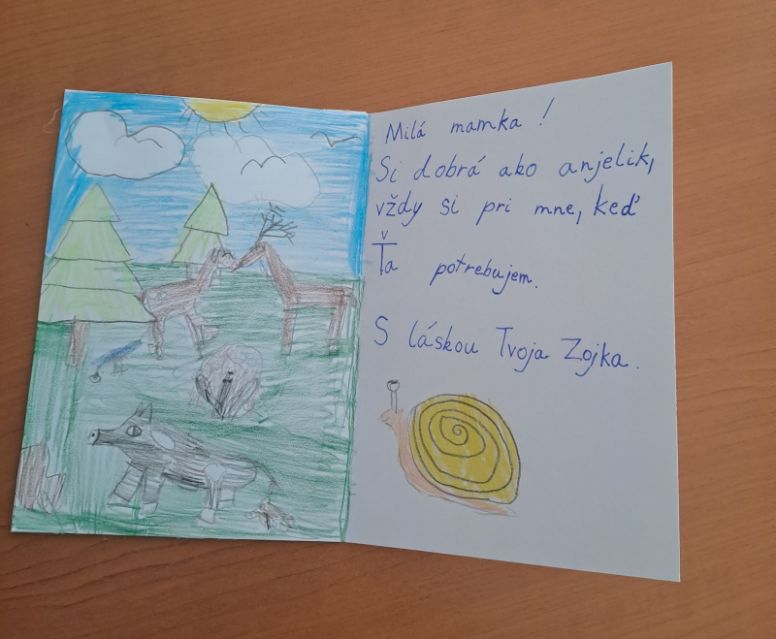 Milá mamka!
Si dobrá ako anjelik,
vždy si pri mne, keď
Ťa potrebujem.
S láskou Tvoja Zojka.